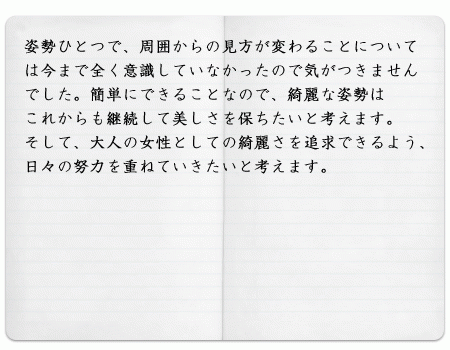 姿勢ひとつで、周囲からの見方が変わることについて
は今まで全く意識していなかったので気がつきません
でした。簡単にできることなので、綺麗な姿勢は
これからも継続して美しさを保ちたいと考えます。
そして、大人の女性としての綺麗さを追求できるよう、
日々の努力を重ねていきたいと考えます。